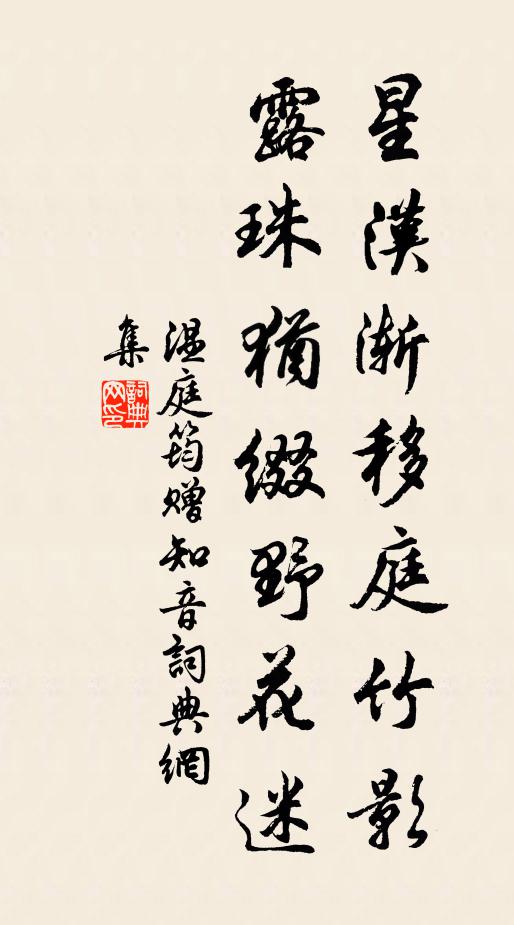 星漢漸移庭竹影
露珠猶綴野花迷
温庭筠赠知音詞典網
集
詞典網印